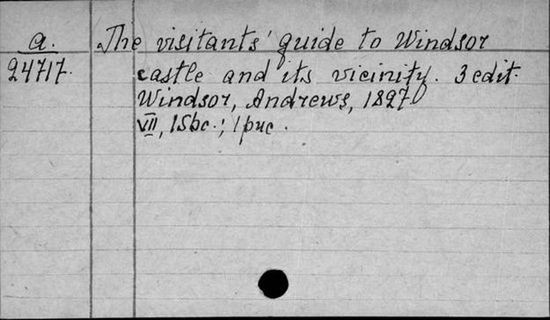 a. The visitants' guide to Windsor
24717. castle and its vicinity. 3 edit.
Windsor, Andrews, 1827
VII, 15bc.; 1рис.